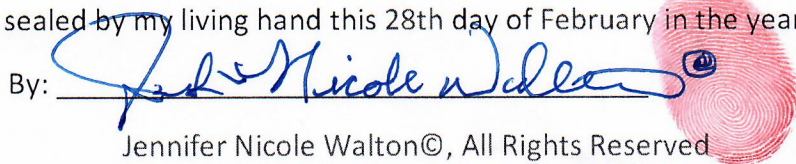 sealed by my living hand this 28th day of February in the year
By: Jennifer Nicole Walton
Jennifer Nicole Walton©, All Rights Reserved